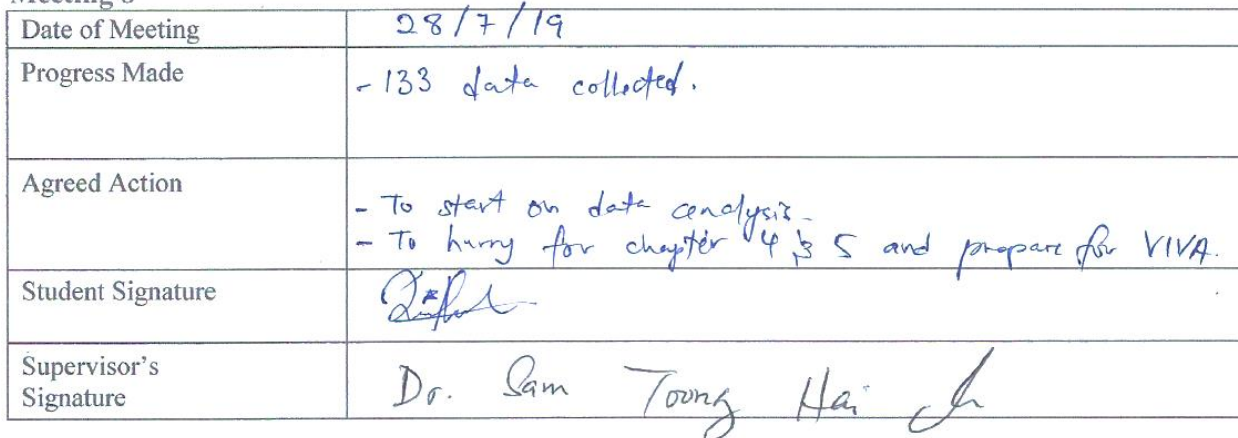 Date of Meeting 28/7/19
Progress Made
- 133 data collected.
Agreed Action
- To start on data analysis.
- To hurry for chapter 4 & 5 and prepare for VIVA.
Student Signature
Supervisor's
Signature
Dr. Sam Toong Hai